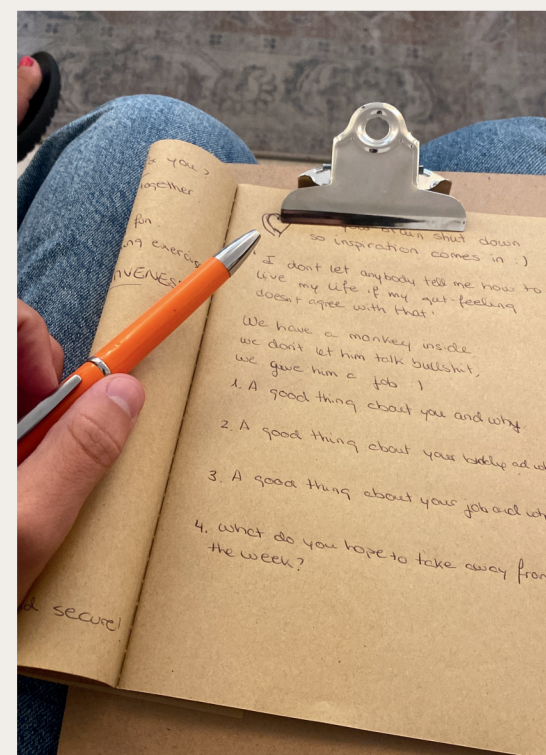 you,
together
fun
exercise
d secure!
your brain shut down
so inspiration comes in :)
I don't let anybody tell me how to
live my life if my gut-feeling
doesn't agree with that.
We have a monkey inside
we don't let him talk bullshit,
we give him a job !
1. A good thing about you and why
2. A good thing about your
3. A good thing about your job and
4. what do you hope to take away from
the week?